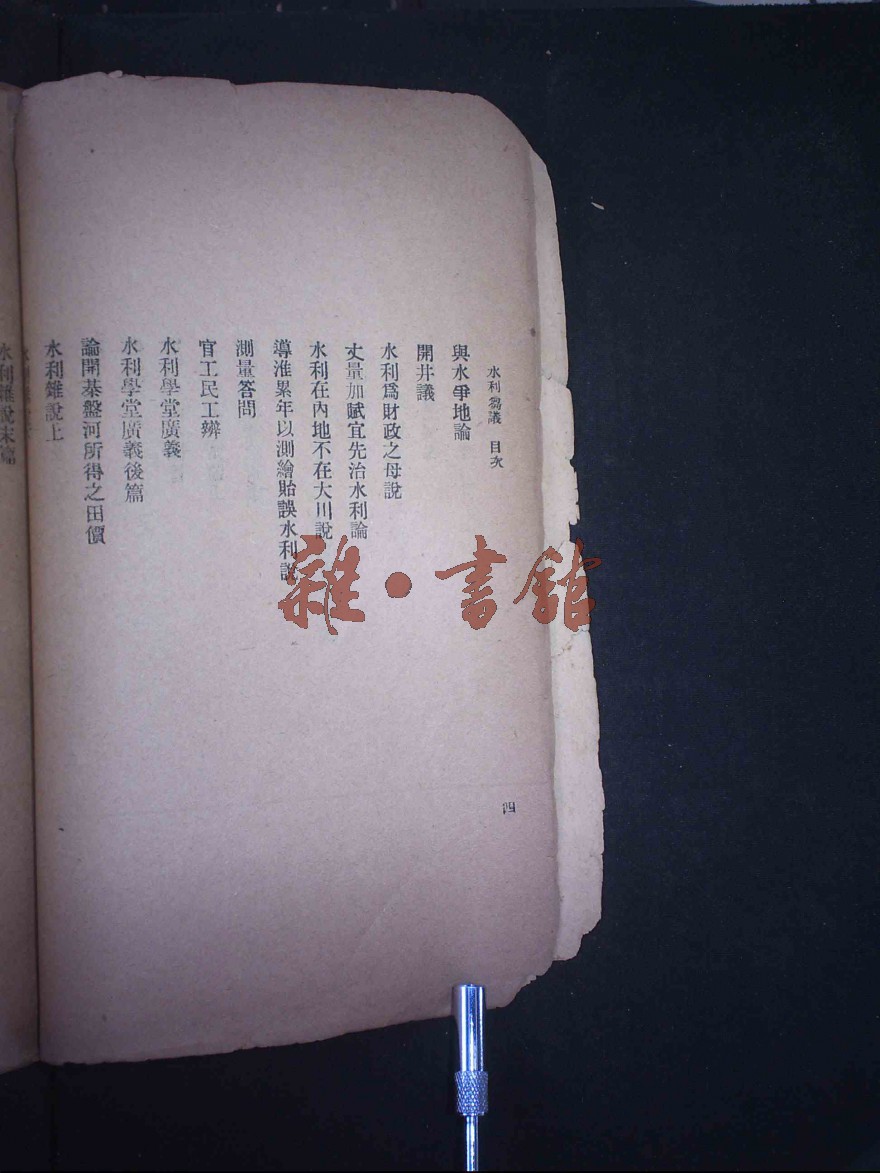 水利芻議 目次
與水爭地論
開井議
水利爲財政之母說
丈量加賦宜先治水利論
水利在內地不在大川說
導淮累年以測繪貽誤水利說
測量答問
官工民工辨
水利學堂廣義
水利學堂廣義後篇
論開棊盤河所得之田價
水利雜說上
水利雜說末篇
四
雜·書館